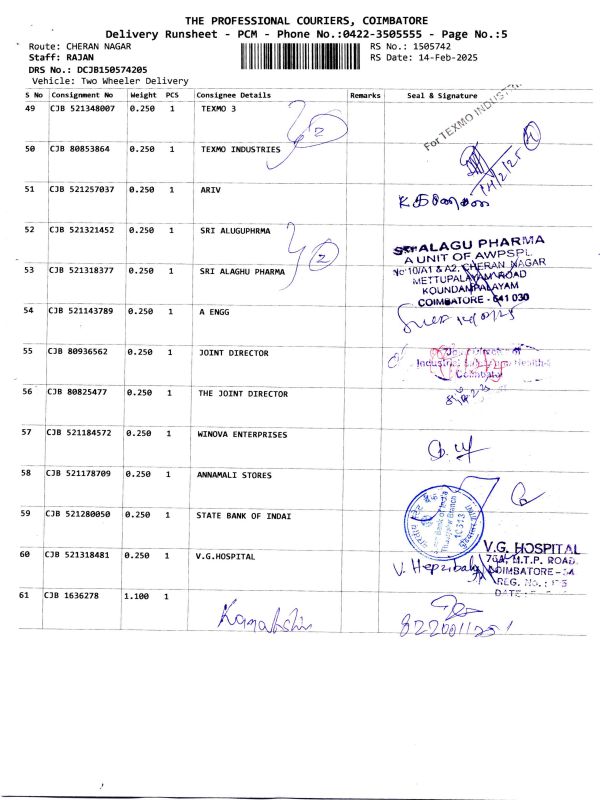 THE PROFESSIONAL COURIERS, COIMBATORE
Delivery Runsheet - PCM - Phone No.:0422-3505555 - Page No.:5
Route: CHERAN NAGAR RS No.: 1505742
Staff: RAJAN RS Date: 14-Feb-2025
DRS No.: DCJB150574205
Vehicle: Two Wheeler Delivery
S No Consignment No Weight PCS Consignee Details Remarks Seal & Signature
49 CJB 521348007 0.250 1 TEXMO 3
2
For TEXMO
50 CJB 80853864 0.250 1 TEXMO INDUSTRIES
14/2/25
51 CJB 521257037 0.250 1 ARIV
52 CJB 521321452 0.250 1 SRI ALUGUPHRMA
2
53 CJB 521318377 0.250 1 SRI ALAGHU PHARMA
SRI ALAGU PHARMA
A UNIT OF AWPSPL
No 10/A1 & A2, CHERAN NAGAR
METTUPALAYAM ROAD
KOUNDANPALAYAM
COIMBATORE - 641 030
54 CJB 521143789 0.250 1 A ENGG
55 CJB 80936562 0.250 1 JOINT DIRECTOR
Joint Director of
Industrial
56 CJB 80825477 0.250 1 THE JOINT DIRECTOR
57 CJB 521184572 0.250 1 WINOVA ENTERPRISES
58 CJB 521178709 0.250 1 ANNAMALI STORES
59 CJB 521280050 0.250 1 STATE BANK OF INDAI
60 CJB 521318481 0.250 1 V.G.HOSPITAL
V.G. HOSPITAL
M.T.P. ROAD
COIMBATORE
REG. No.:
DATE
61 CJB 1636278 1.100 1